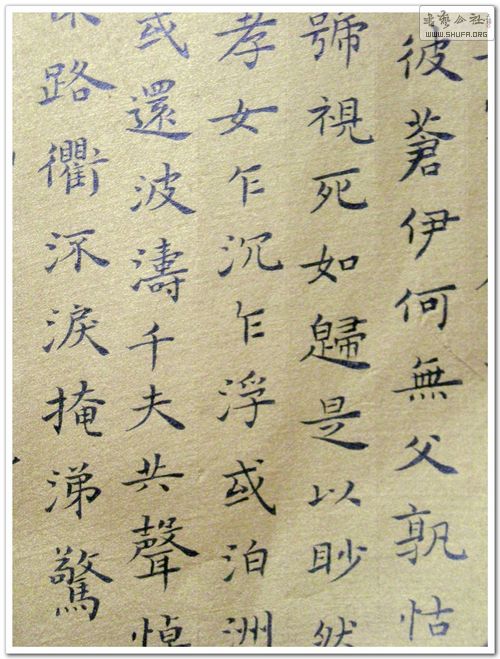 彼蒼伊何無父孰怙
號視死如歸是以眇然
孝女乍沉乍浮或泊洲
或還波濤千夫共聲悼
路衢㳅淚掩涕驚
WWW.SHUFA.ORG